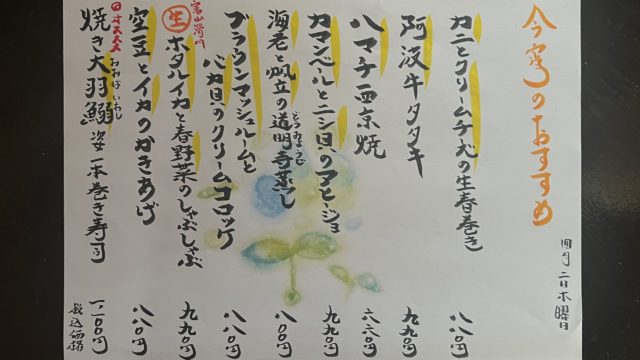 今宵のおすすめ
四月二日木曜日
カニとクリームチーズの生春巻き 八八〇円
阿波牛タタキ 九九〇円
ハマチ西京焼
カマンベールとニシ貝のアヒージョ 九九〇円
どうみょうじ
海老と帆立の道明寺蒸し 八八〇円
ブラウンマッシュルームと
バカ貝のクリームコロッケ 八八〇円
富山滑川
生 ホタルイカと春野菜のしゃぶしゃぶ 九九〇円
空豆とイカのかきあげ 八八〇円
おおばいわし
焼き大羽鰯 姿一本巻き寿司 一一〇〇円
税込価格